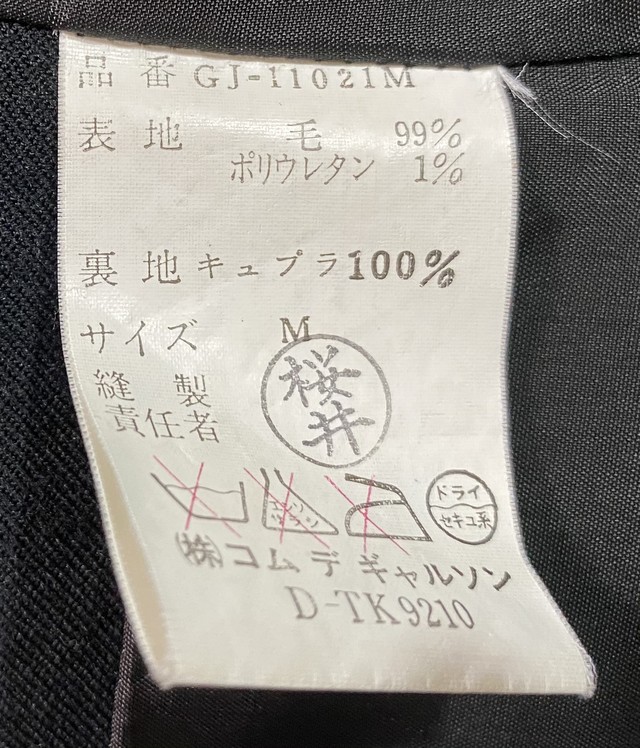 品番 GJ-11021M
表地 毛 99%
ポリウレタン 1%
裏地 キュプラ 100%
サイズ M
縫製
責任者
桜井
エンソ
サラシ
ドライ
セキユ系
(株)コム デ ギャルソン
D-TK9210